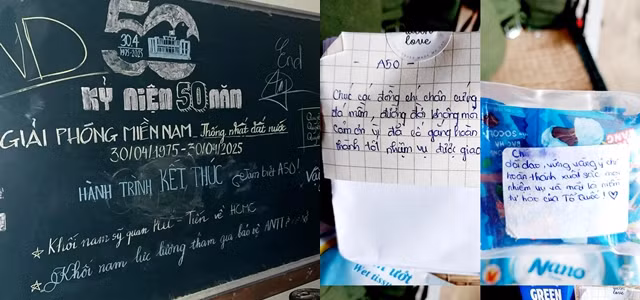 VD
50
30.4
1975-2025
End
KỶ NIỆM 50 NĂM
GIẢI PHÓNG MIỀN NAM, Thống nhất đất nước
30/04/1975-30/04/2025
HÀNH TRÌNH KẾT THÚC
Tạm biệt A50!
☆ Khối nam sỹ quan
Tiến về HCMC
☆ Khối nam lực lượng tham gia bảo vệ ANTT
love
- A50 -
Chúc các đồng chí chân cứng
đá mềm, đường dài không mỏi
Cảm ơn vì đã cố gắng hoàn
thành tốt nhiệm vụ được giao
ướt
Wet tissue
dồi dào, vững vàng ý chí
hoàn thành xuất sắc mọi
nhiệm vụ và mãi là niềm
tự hào của Tổ Quốc! ♡
Nano
GREEN